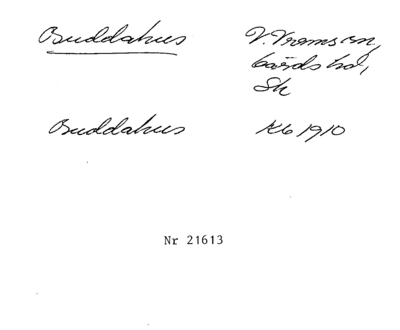 Buddahus V. Vrams sn,
bärds hd,
Sk
Buddahus Kb 1910
Nr 21613